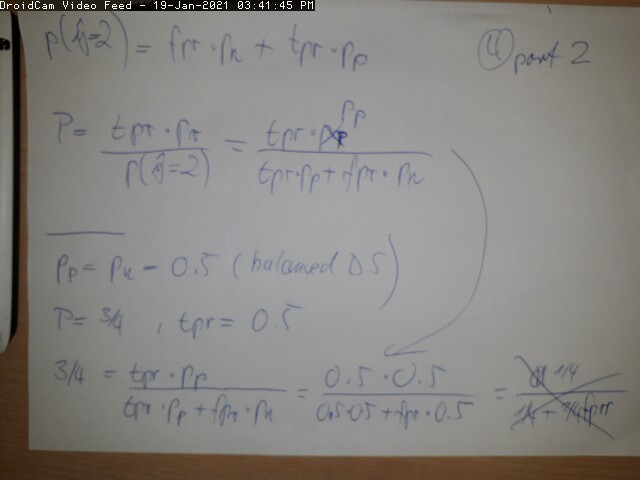 DroidCam Video Feed - 19-Jan-2021 03:41:45 PM
p(ŷ=2) = fpr · pn + tpr · pp
④ part 2
P = tpr · pr / p(ŷ=2) = tpr · pp / tpr·pp + fpr · pn
pp = pn - 0.5 (balanced DS)
P = 3/4 , tpr = 0.5
3/4 = tpr · pp / tpr · pp + fpr · pn = 0.5 · 0.5 / 0.5·0.5 + fpr · 0.5 = 1/4 / 1/4 + 3/4 fpr